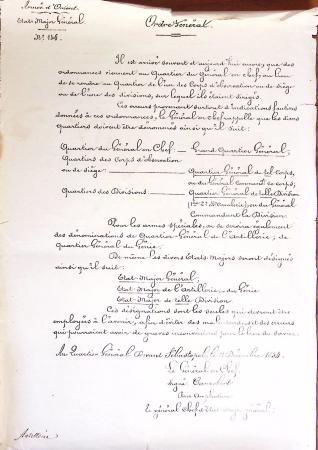 Armée d'Orient.
Etat-Major Général
Ordre Général.
Il est arrivé souvent et aujourd'hui encore, que des
ordonnances viennent au Quartier du Général en chef, au lieu
de se rendre au Quartier de l'un des Corps d'observation ou de siège
ou de l'une des divisions, sur lequel ils étaient dirigés.
Ces erreurs provenant surtout d'indications fautives
données à ces ordonnances, le Général en chef rappelle que les divers
Quartiers doivent être dénommés ainsi qu'il suit:
Quartier du Général en Chef Grand Quartier Général;
Quartiers des Corps d'observation
ou de siège Quartier Général de tel Corps,
ou du Général Commt. le corps;
Quartiers des Divisions Quartier Général de telle Division
ou du Général
Commandant la Division.
Pour les armes spéciales, on se servira également
des dénominations de Quartier Général de l'Artillerie, de
Quartier Général du Génie.
De même les divers Etats-Majors seront désignés
ainsi qu'il suit:
Etat-Major Général;
Etat-Major de l'Artillerie, du Génie
Etat-Major de telle Division
Ces désignations sont les seules qui devront être
employées à l'avenir, afin d'éviter des malentendus et des erreurs
qui pourraient avoir de graves inconvénients pour le bien du service.
Au Quartier Général Devant Sébastopol, le Décembre 1854.
Le Général en Chef,
signé Canrobert
Pour Ampliation
Le général Chef d'Etat-major général,
Artillerie